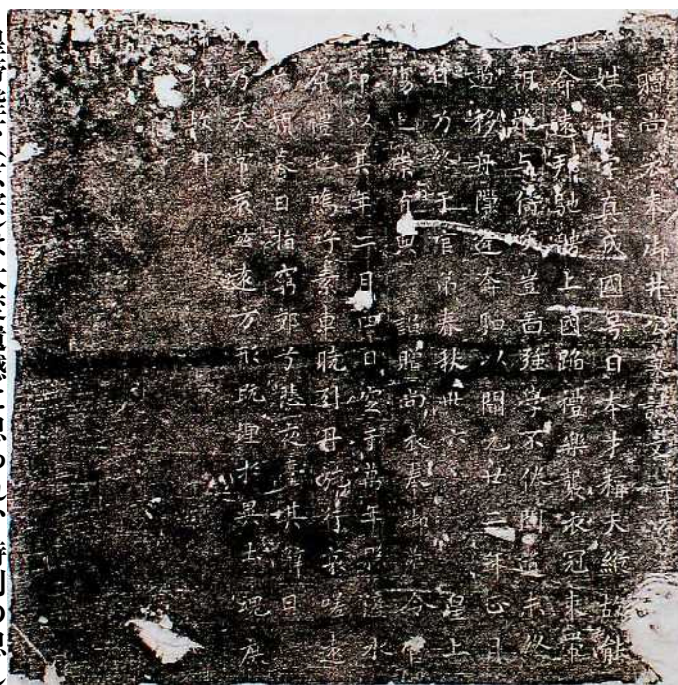 贈尚衣奉御井公墓誌文并序
姓井字真成國号日本才稱天縱故能
命遠邦馳騁上國蹈禮樂襲衣冠束帶
朝難与儔矣豈啚强學不倦聞道未終
遇移舟隙逢奔駟以開元廿二年正月
日乃終于官弟春秋卅六皇上
傷追崇有典詔贈尚衣奉御葬令官
卽以其年二月四日窆于萬年縣滻水
原禮也嗚呼素車曉引丹旐行哀嗟遠
兮頽暮日指窮郊兮悲夜臺其辭曰
乃天常哀茲遠方形旣埋於異土魂庶
於故鄉